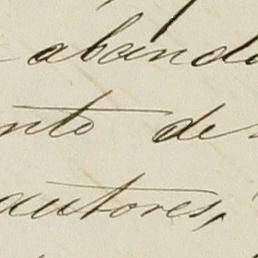 aband
nto de
autores,